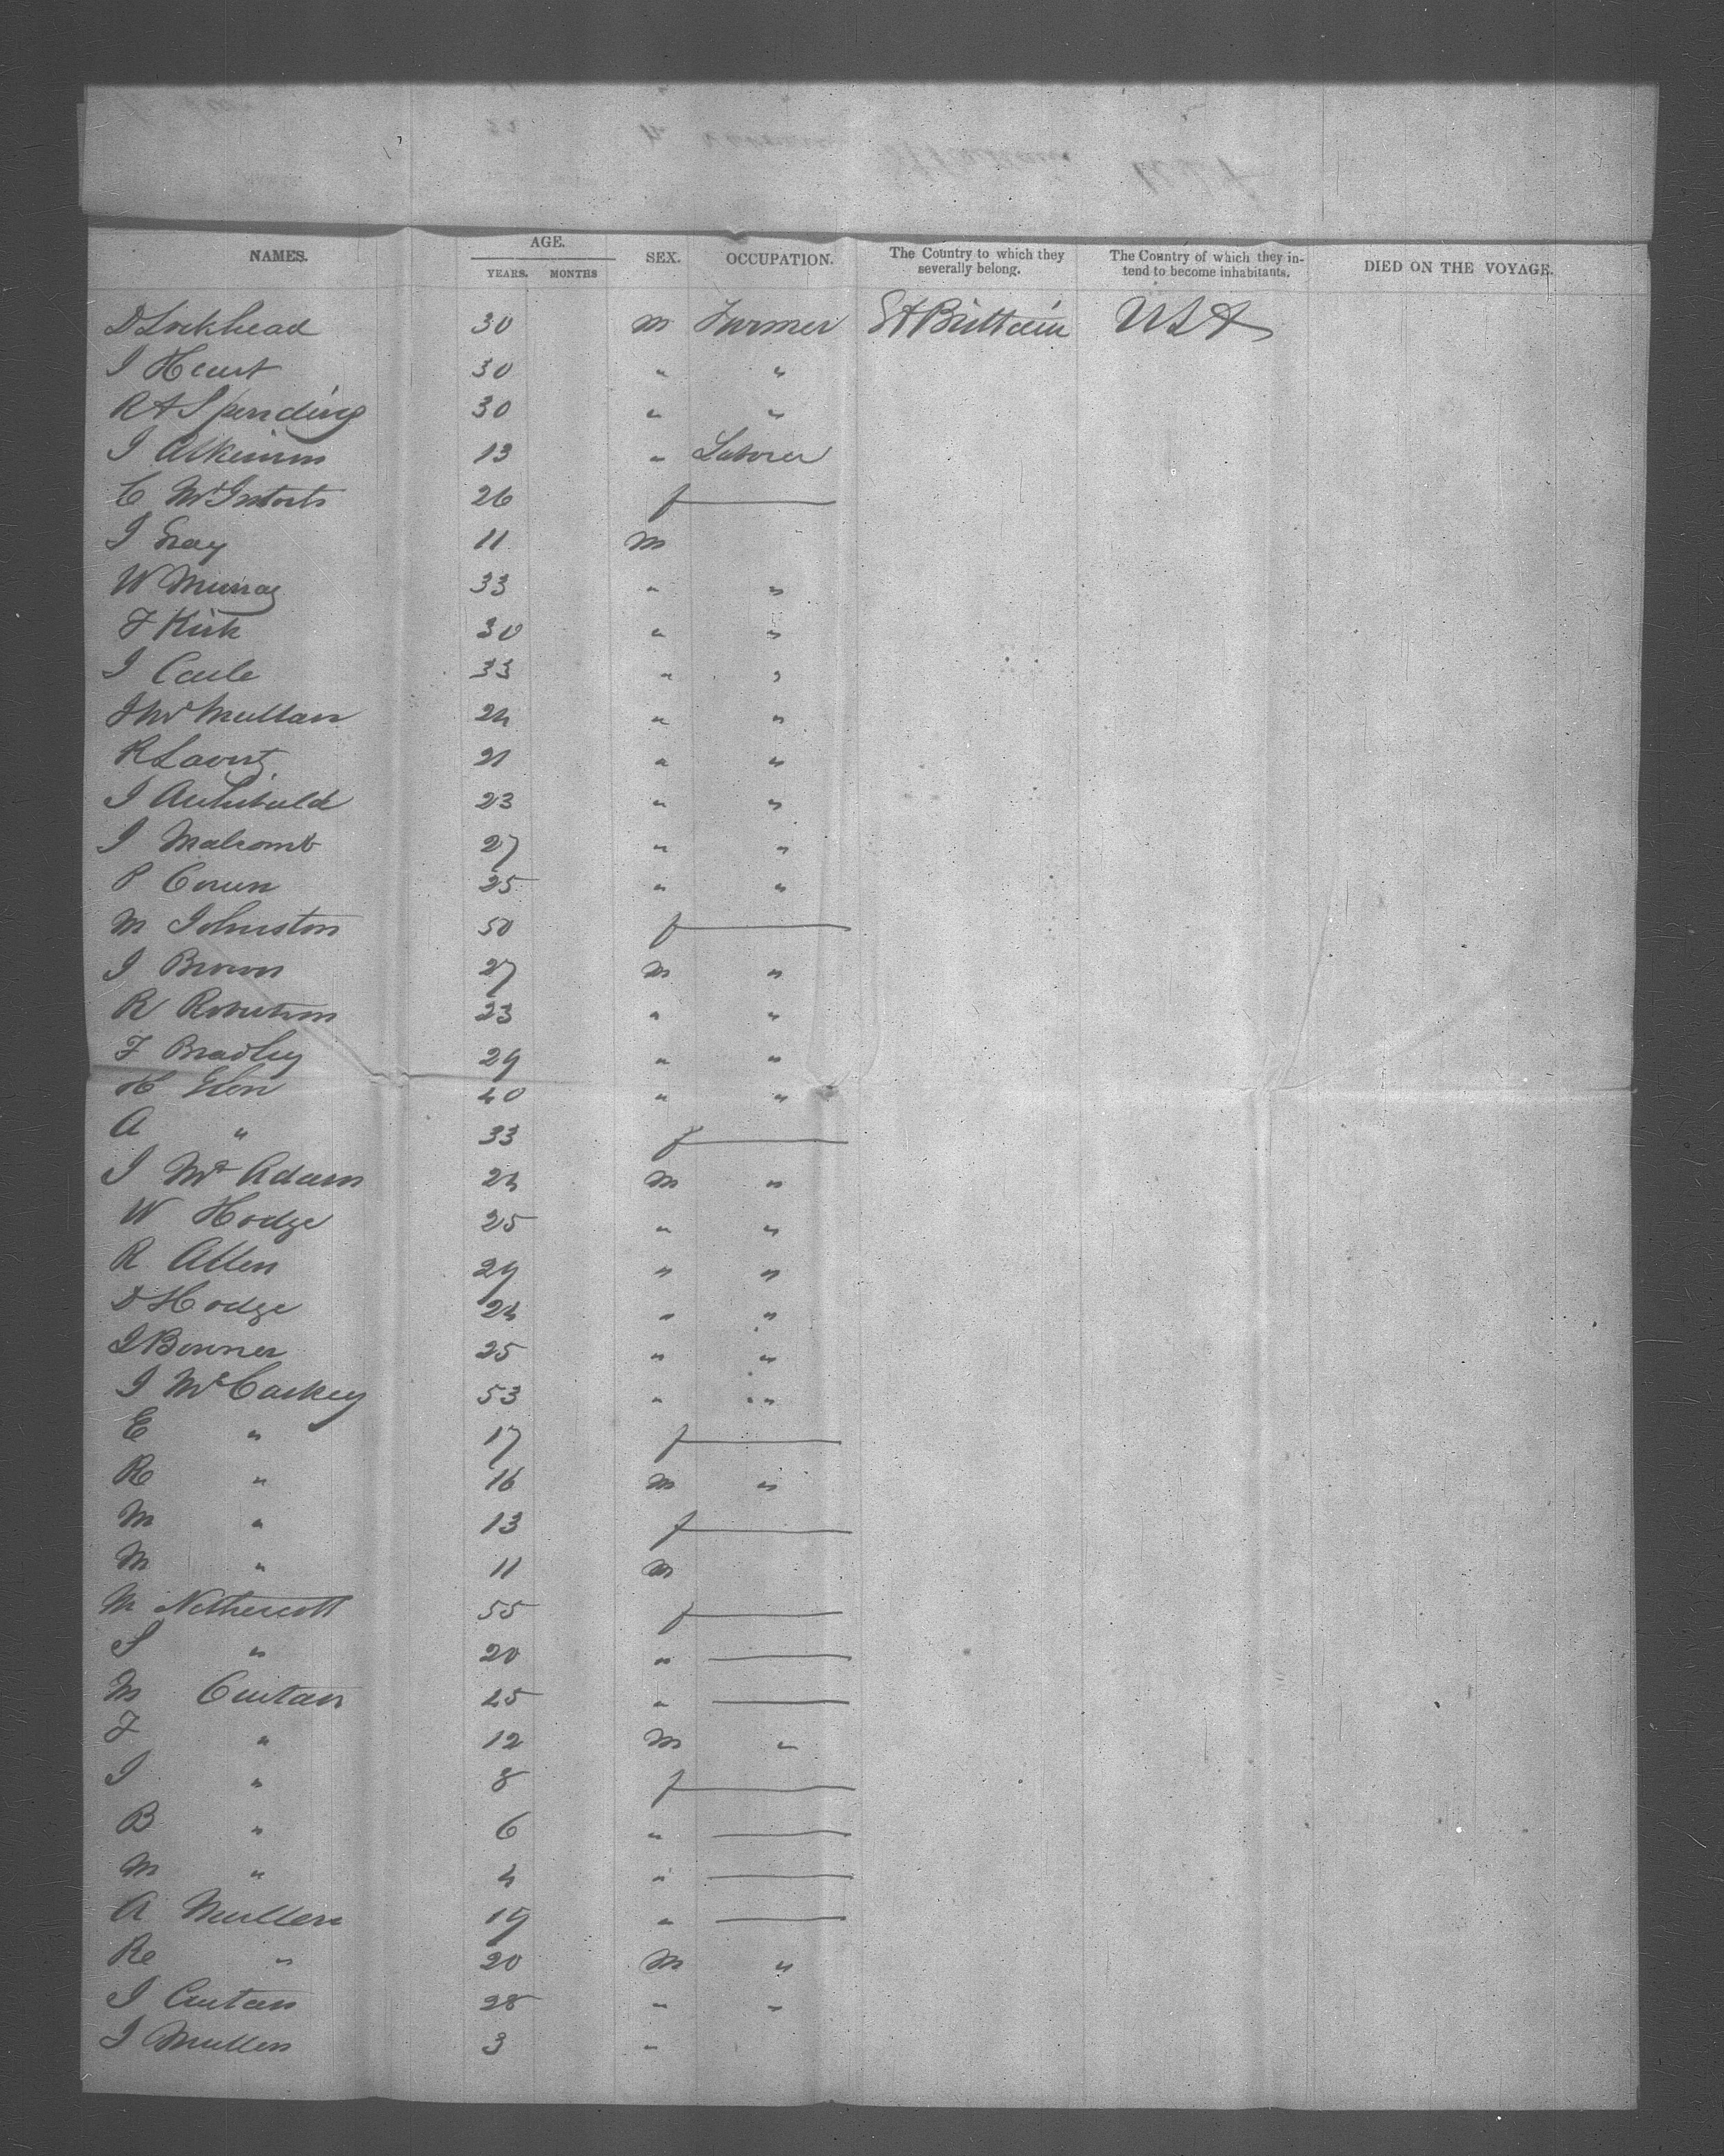 NAMES. AGE. YEARS. MONTHS SEX. OCCUPATION. The Country to which they severally belong. The Country of which they intend to become inhabitants. DIED ON THE VOYAGE.
D Lockhead 30 m Farmer Gt Brittain USA
J Hunt 30 " "
R A Spending 30 " "
J Atkinson 13 " Laborer
C McIntosh 26 f —
J Gray 11 m
W Murray 33 " "
F Kirk 30 " "
J Carle 33 " "
J McMullan 24 " "
R 21 " "
J Archibald 23 " "
J Malcomb 27 " "
P 25 " "
M Johnston 50 f —
J Brown 27 m "
R Robertson 23 " "
F Bradley 29 " "
H Glen 40 " "
A " 33 f —
J McAdam 24 m "
W Hodge 25 " "
R Allen 29 " "
D Hodge 24 " "
J Bonner 25 " "
J McCaskey 53 " "
E " 17 f —
R " 16 m "
M " 13 f —
M " 11 m
M Nethercott 55 f —
S " 20 " —
M 25 " —
F " 12 m "
J " 8 f —
B " 6 " —
M " 4 " —
A Mullen 19 " —
Re " 20 m "
J 28 " "
J Mullen 3 "